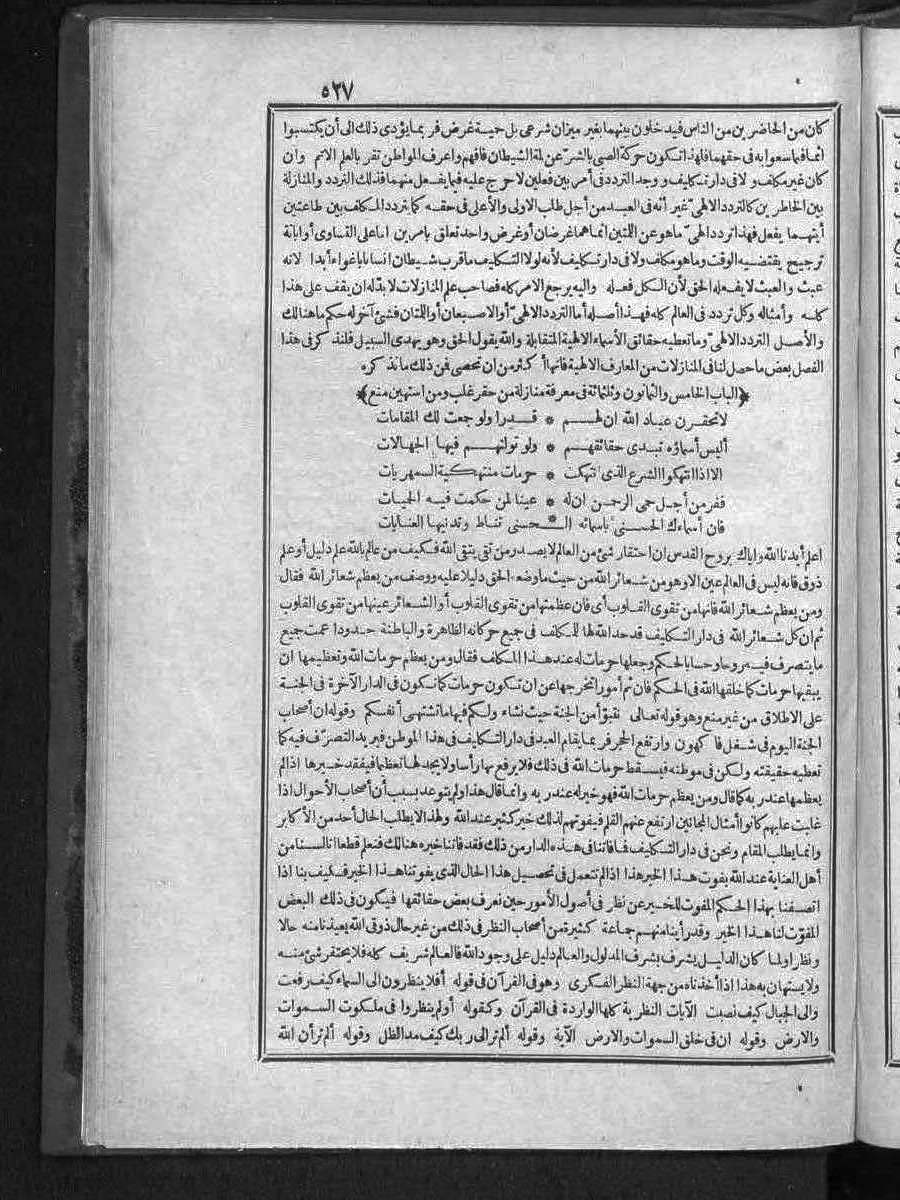 ٥٢٧
كان من الحاضرين من الناس فيدخلون بينهما بغير ميزان شرعى بل حمية غرض فربما يؤدى ذلك الى أن يكتسبوا
اثما فيما سعوا به فى حقهما فلهذا تكون حركة الصبى بالشر عن لمة الشيطان فافهم واعرف المواطن تفز بالعلم الاتم وان
كان غير مكلف ولا فى دار تكليف ووجد التردد فى أمر بين فعلين لا حرج عليه فيما يفعل منهما فذلك التردد والمنازلة
بين الخاطرين كالتردد الالهىّ غير أنه فى العبد من أجل طلب الاولى والأعلى فى حقه كما يتردد المكلف بين طاعتين
أيتهما يفعل فهذا تردد الهىّ ما هو عن اللمتين انما هما غرضان أو غرض واحد تعلق بامرين اما على التساوى أو ابانة
ترجيح يقتضيه الوقت وما هو مكلف ولا فى دار تكليف لأنه لولا التكليف ما قرب شيطان انسانا باغواء أبدا لانه
عبث والعبث لا يفعله الحق لأن الكل فعله واليه يرجع الامر كله فصاحب علم المنازلات لا بدّ له ان يقف على هذا
كله وأمثاله وكل تردد فى العالم كله فهذا أصله أما التردد الالهىّ أو الاصبعان أو اللمتان فشئ آخر له حكم ما هنالك
والأصل التردد الالهىّ وما تعطيه حقائق الأسماء الالهية المتقابلة والله يقول الحق وهو يهدى السبيل فلنذكر فى هذا
الفصل بعض ما حصل لنا فى المنازلات من المعارف الالهية فانها أكثر من ان تحصى فمن ذلك ما نذكره
﴿الباب الخامس والثمانون وثلثمائة فى معرفة منازلة من حقر غلب ومن استهين منع﴾
لا تحقرن عباد الله ان لهم * قدرا ولو جمعت لك المقامات
أليس أسماؤه تبدى حقائقهم * ولو تولتهم فيها الجهالات
الا اذا انتهكوا الشرع الذى انتهكت * حرمات منتهكيه السمهريات
ففر من أجل حمى الرحمن ان له * عينا لمن حكمت فيه الحميات
فان أسماءك الحسنى باسمائه الـ * ـحسنى تناط وتدنيها العنايات
اعلم أيدنا الله واياك بروح القدس ان احتقار شئ من العالم لا يصدر من تقى يتقى الله فكيف من عالم بالله علم دليل أو علم
ذوق فانه ليس فى العالم عين الا وهو من شعائر الله من حيث ما وضعه الحق دليلا عليه ووصف من يعظم شعائر الله فقال
ومن يعظم شعائر الله فانها من تقوى القلوب أى فان عظمتها من تقوى القلوب أو الشعائر عينها من تقوى القلوب
ثم ان كل شعائر الله فى دار التكليف قد حد الله لها للمكلف فى جميع حركاته الظاهرة والباطنة حدودا عمت جميع
ما يتصرف فيه روحا وحسا بالحكم وجعلها حرمات له عند هذا المكلف فقال ومن يعظم حرمات الله وتعظيمها ان
يبقيها حرمات كما خلقها الله فى الحكم فان ثم أمورا تخرجها عن ان تكون حرمات كما تكون فى الدار الآخرة فى الجنة
على الاطلاق من غير منع وهو قوله تعالى نتبوّأ من الجنة حيث نشاء ولكم فيها ما تشتهى أنفسكم وقوله ان أصحاب
الجنة اليوم فى شغل فاكهون وارتفع الحجر فربما يقام العبد فى دار التكليف فى هذا الموطن فيريد التصرّف فيه كما
تعطيه حقيقته ولكن فى موطنه فيسقط حرمات الله فى ذلك فلا يرفع بها رأسا ولا يجد لها تعظيما فيفقد خيرها اذا لم
يعظمها عند ربه كما قال ومن يعظم حرمات الله فهو خير له عند ربه وانما قال هذا ولم يتوعد بسبب أن أصحاب الأحوال اذا
غلبت عليهم كانوا أمثال المجانين ارتفع عنهم القلم فيفوتهم لذلك خير كثير عند الله ولهذا لا يطلب الحال أحد من الأكابر
وانما يطلب المقام ونحن فى دار التكليف فما فاتنا فى هذه الدار من ذلك فقد فاتنا خيره هنالك فنعلم قطعا انا لسنا من
أهل العناية عند الله بفوت هذا الخير هذا اذا لم نتعمل فى تحصيل هذا الحال الذى يفوتنا هذا الخير فكيف بنا اذا
اتصفنا بهذا الحكم المفوت للخير عن نظر فى أصول الأمور حين نعرف بعض حقائقها فيكون فى ذلك البعض
المفوّت لنا هذا الخير وقد رأينا منهم جماعة كثيرة من أصحاب النظر فى ذلك من غير حال ذوقى الله يعيذنا منه حالا
ونظرا ولما كان الدليل يشرف بشرف المدلول والعالم دليل على وجود الله فالعالم شريف كله فلا يحتقر شئ منه
ولا يستهان به هذا اذا أخذناه من جهة النظر الفكرى وهو فى القرآن فى قوله أفلا ينظرون الى السماء كيف رفعت
والى الجبال كيف نصبت الآيات النظرية كلها الواردة فى القرآن وكقوله أولم ينظروا فى ملكوت السموات
والارض وقوله ان فى خلق السموات والارض الآية وقوله ألم تر الى ربك كيف مد الظل وقوله ألم تر أن الله